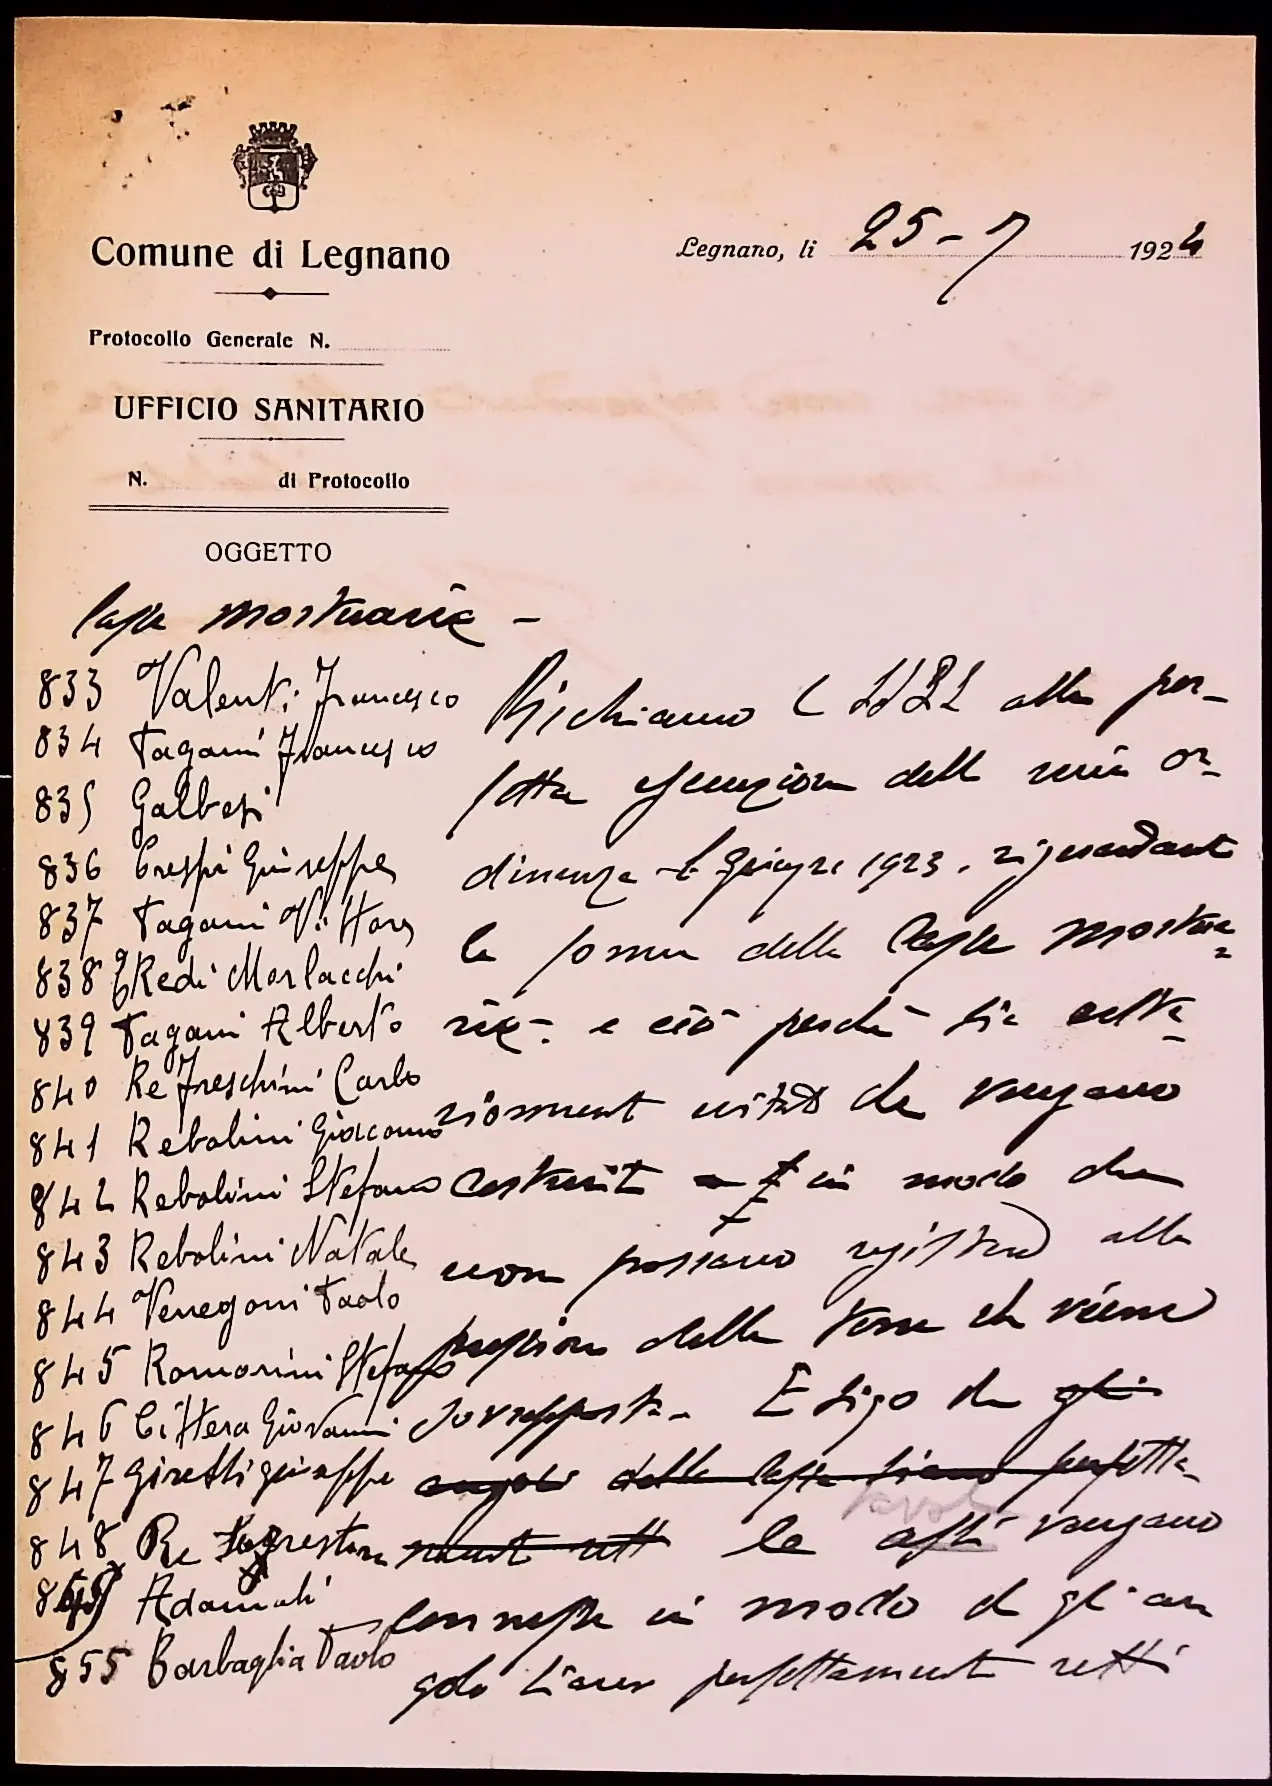 Comune di Legnano
Legnano, li 25-7 1924
Protocollo Generale N.
UFFICIO SANITARIO
N. di Protocollo
OGGETTO
Casse mortuarie -
833 Valenti Francesco
834 Pagani Francesco
835 Galbesi
836 Crespi Giuseppe
837 Pagani Vittore
838 Eredi Morlacchi
839 Pagani Alberto
840 Re Freschini Carlo
841 Rebolini Giacomo
842 Rebolini Stefano
843 Rebolini Natale
844 Venegoni Paolo
845 Romorini Stefano
846 Cittera Giovanni
847 Giretti Giuseppe
848 Re
Adamoli
855 Barbaglia Paolo
Richiamo alla per-
fetta esecuzione della mia or-
dinanza Giugno 1923. riguardante
la forma delle Casse mortua-
rie - e ciò perchè sia
evitato che vengano
costruite in modo che
non possano alla
pressione della terra che viene
sovrapposta. Esigo che gli
angoli delle Casse siano perfetta-
mente retti le assi vengano
connesse in modo che gli an
goli siano perfettamente retti